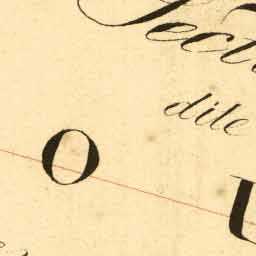 Sect
dite
O U